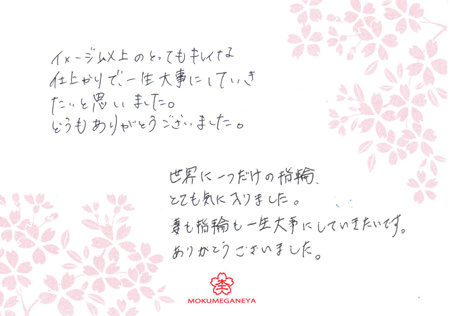 イメージ以上のとってもキレイな
仕上がりで、一生大事にしていき
たいと思いました。
どうもありがとうございました。
世界に一つだけの指輪、
とても気に入りました。
妻も指輪も一生大事にしていきたいです。
ありがとうございました。
MOKUMEGANEYA